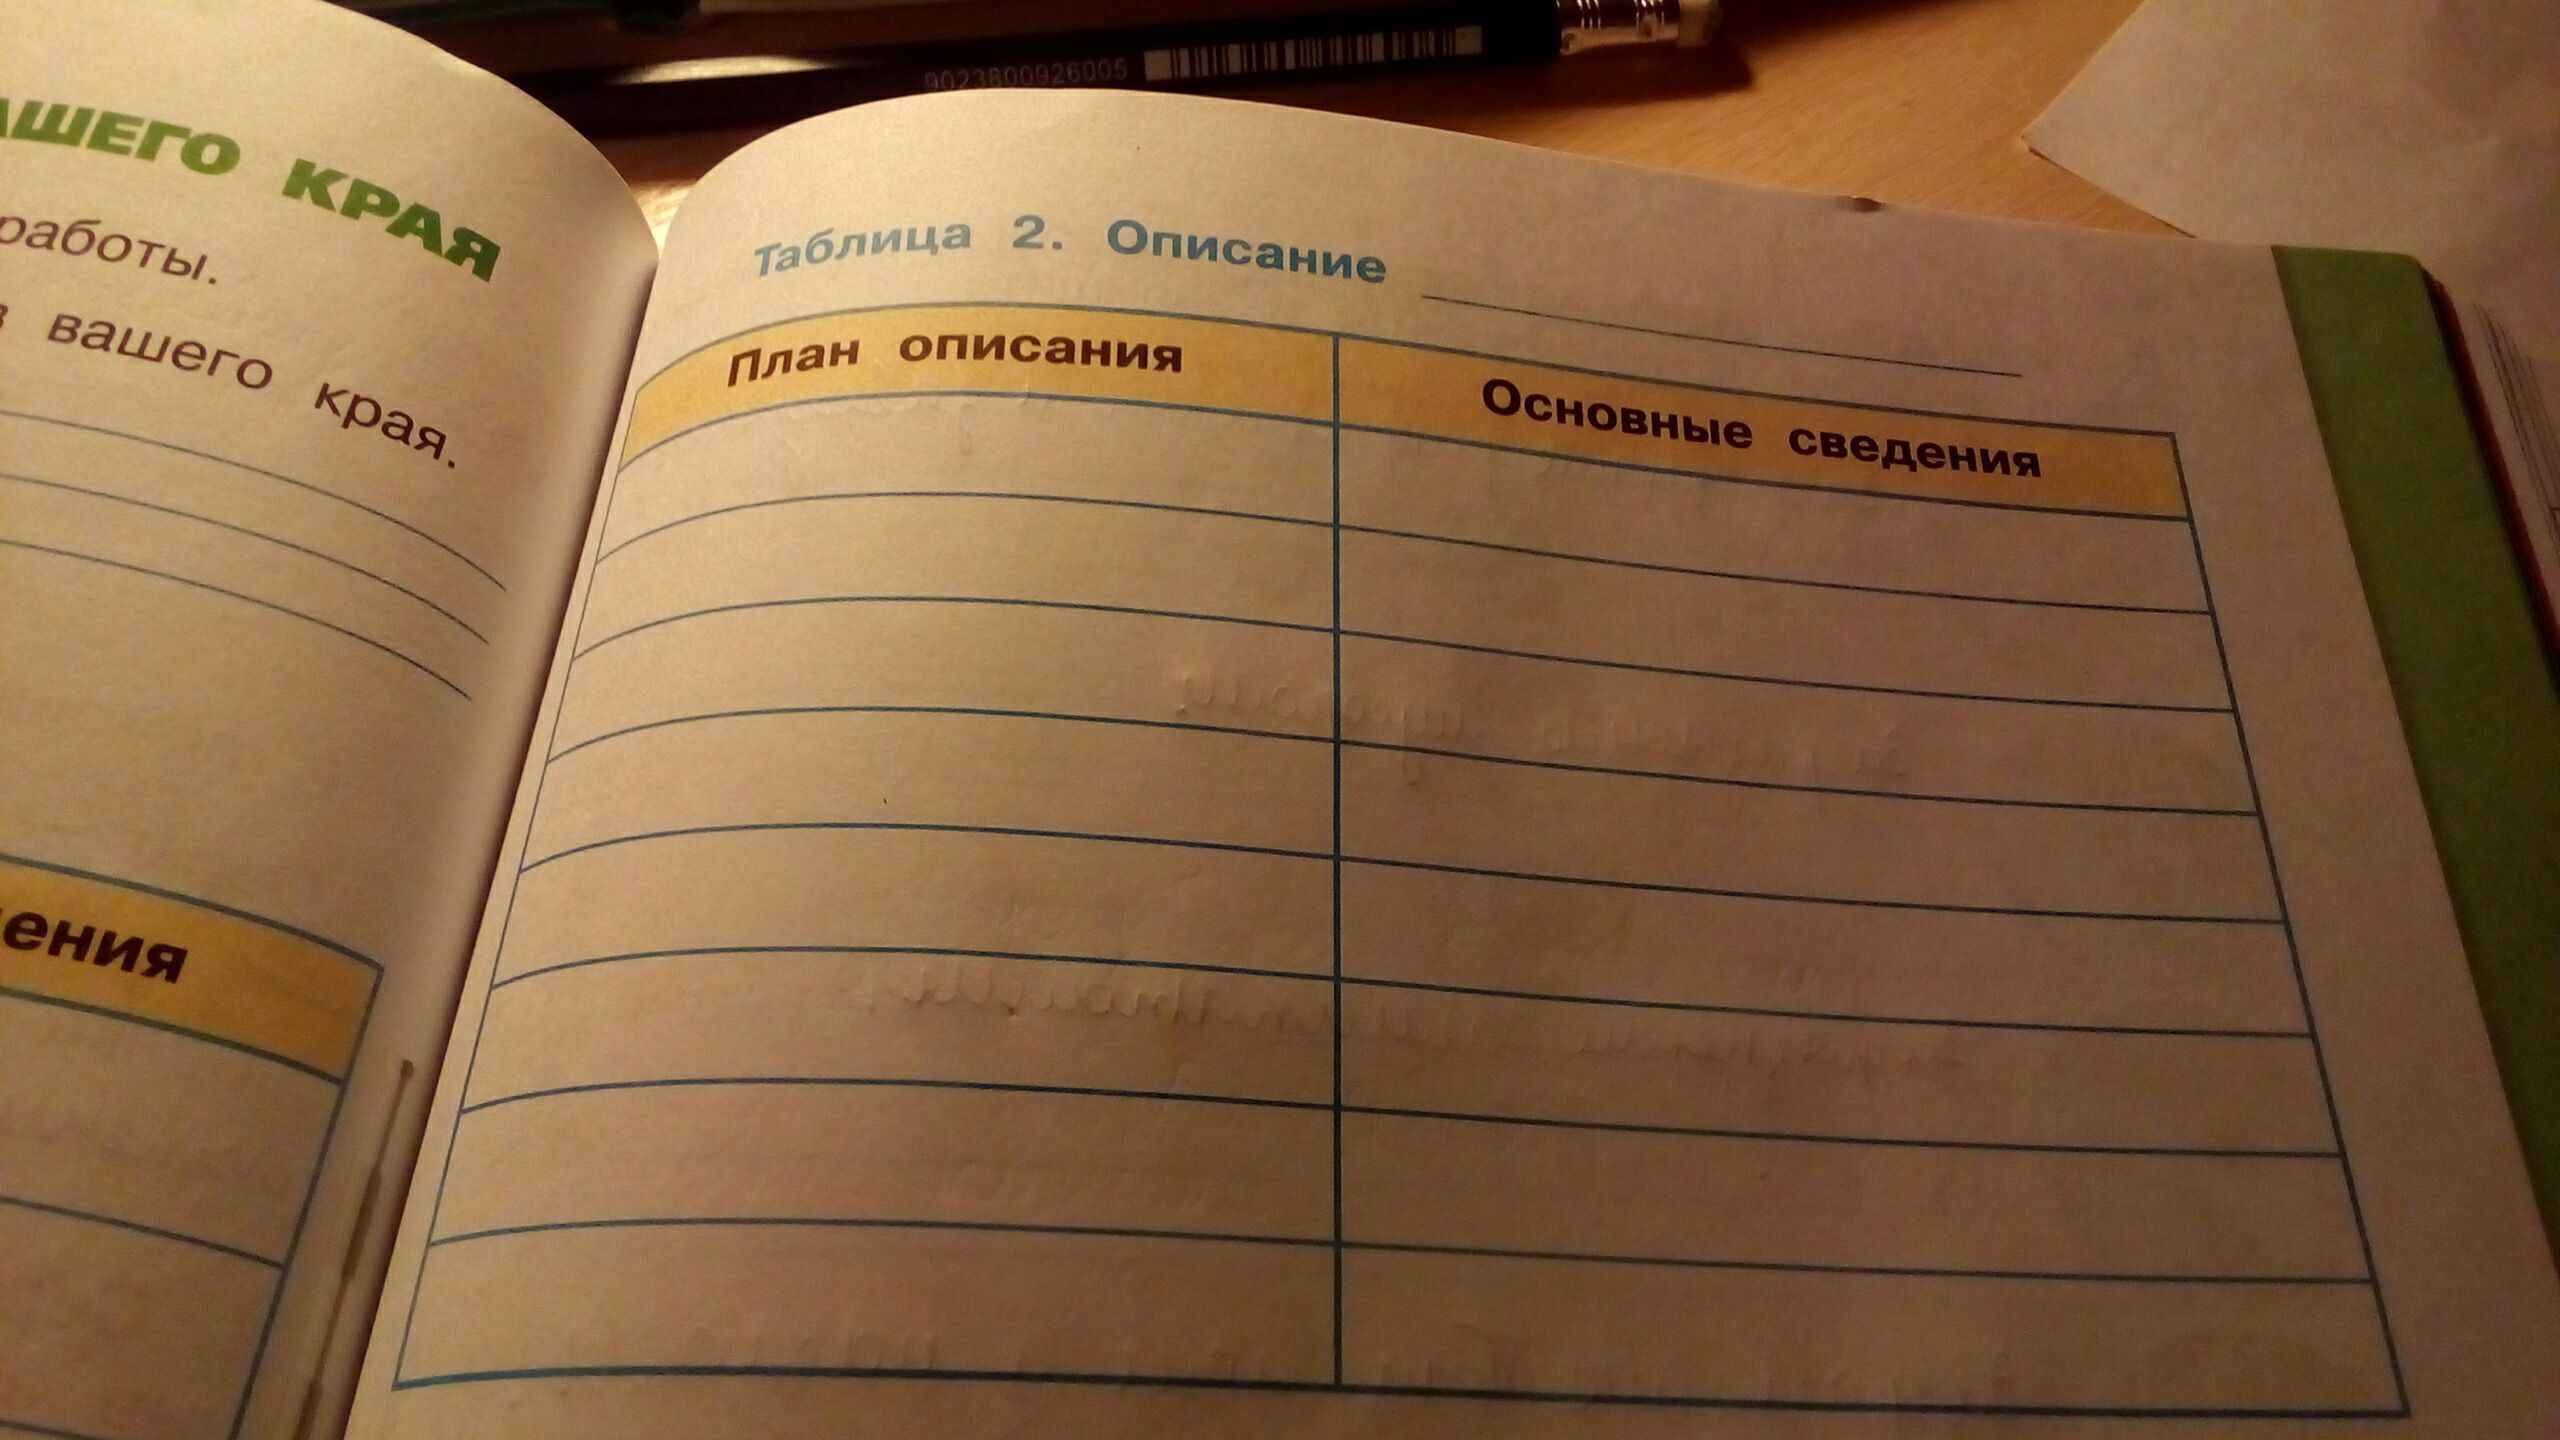 9023800926005
АШЕГО КРАЯ
работы.
в вашего края.
ения
Таблица 2. Описание
План описания
Основные сведения